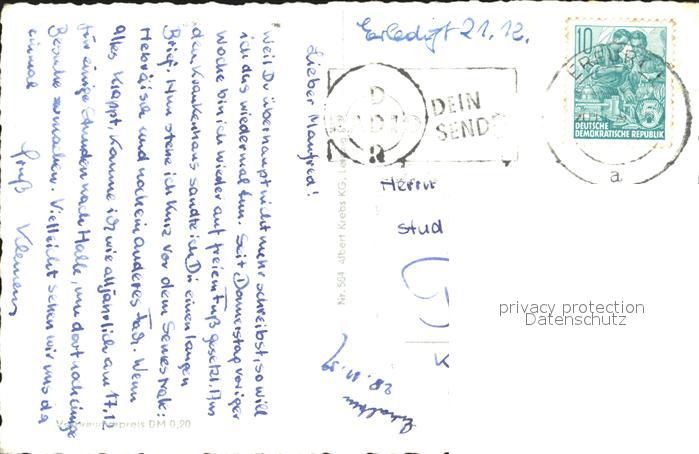 Erledigt 21.12.
Lieber Manfred!
weil Du überhaupt nicht mehr schreibst, so will
ich das wieder mal tun. Seit Donnerstag voriger
Woche bin ich wieder auf freiem Fuß gesetzt. Aus
dem Krankenhaus sandte ich Dir einen langen
Brief. Nun stehe ich kurz vor dem
Hebräisch und noch ein anderes Fach. Wenn
alles klappt, komme ich wie alljährlich am 17.12
für einige Stunden nach Halle, um dort noch einige
Besuche zu machen. Vielleicht sehen wir uns da
einmal
Gruß Klemens
Erhalten
28.11.
Herrn
stud
K
Nr. 504 Albert Krebs KG.
Verbraucherpreis DM 0,20
DEIN
SENDER
10
5
DEUTSCHE
DEMOKRATISCHE REPUBLIK
a
privacy protection
Datenschutz